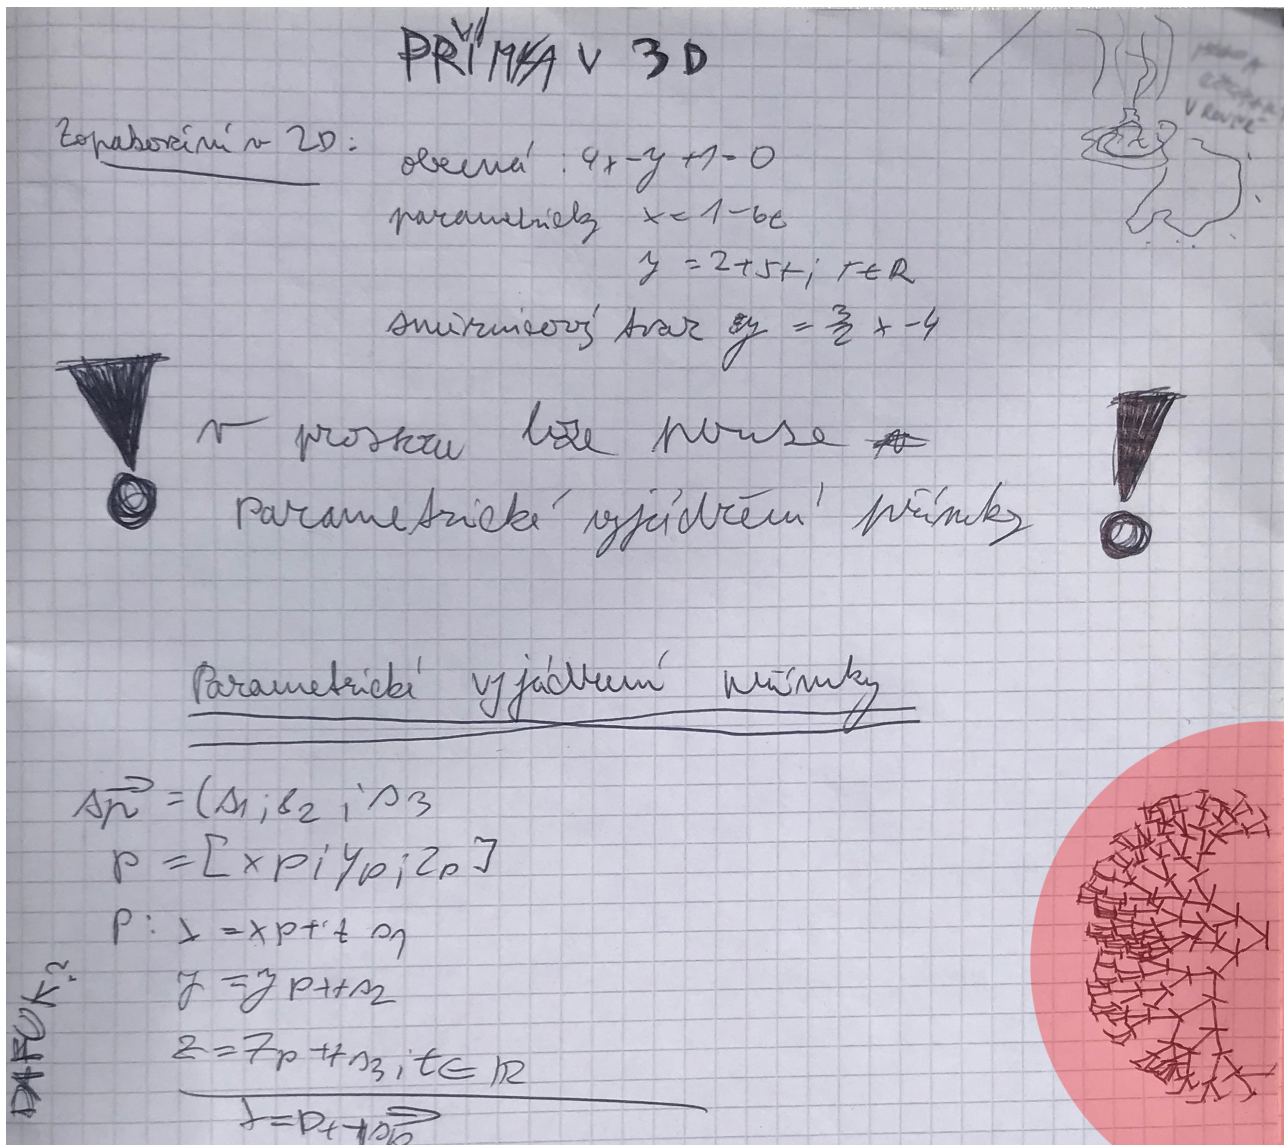 PŘÍMKA V 3D
V ROVINĚ
Zopakování v 2D:
obecná: 4x-y+1=0
parametricky x=1-6t
y=2+5t; t∈R
směrnicový tvar y=3/2 x-4
v prostoru lze pouze
parametrické vyjádření přímky
Parametrické vyjádření přímky
sp=(s1;s2;s3
P=[xp;yp;zp]
P: x=xp+t s1
y=yp+ts2
z=zp+ts3, t∈R
DAFUK?